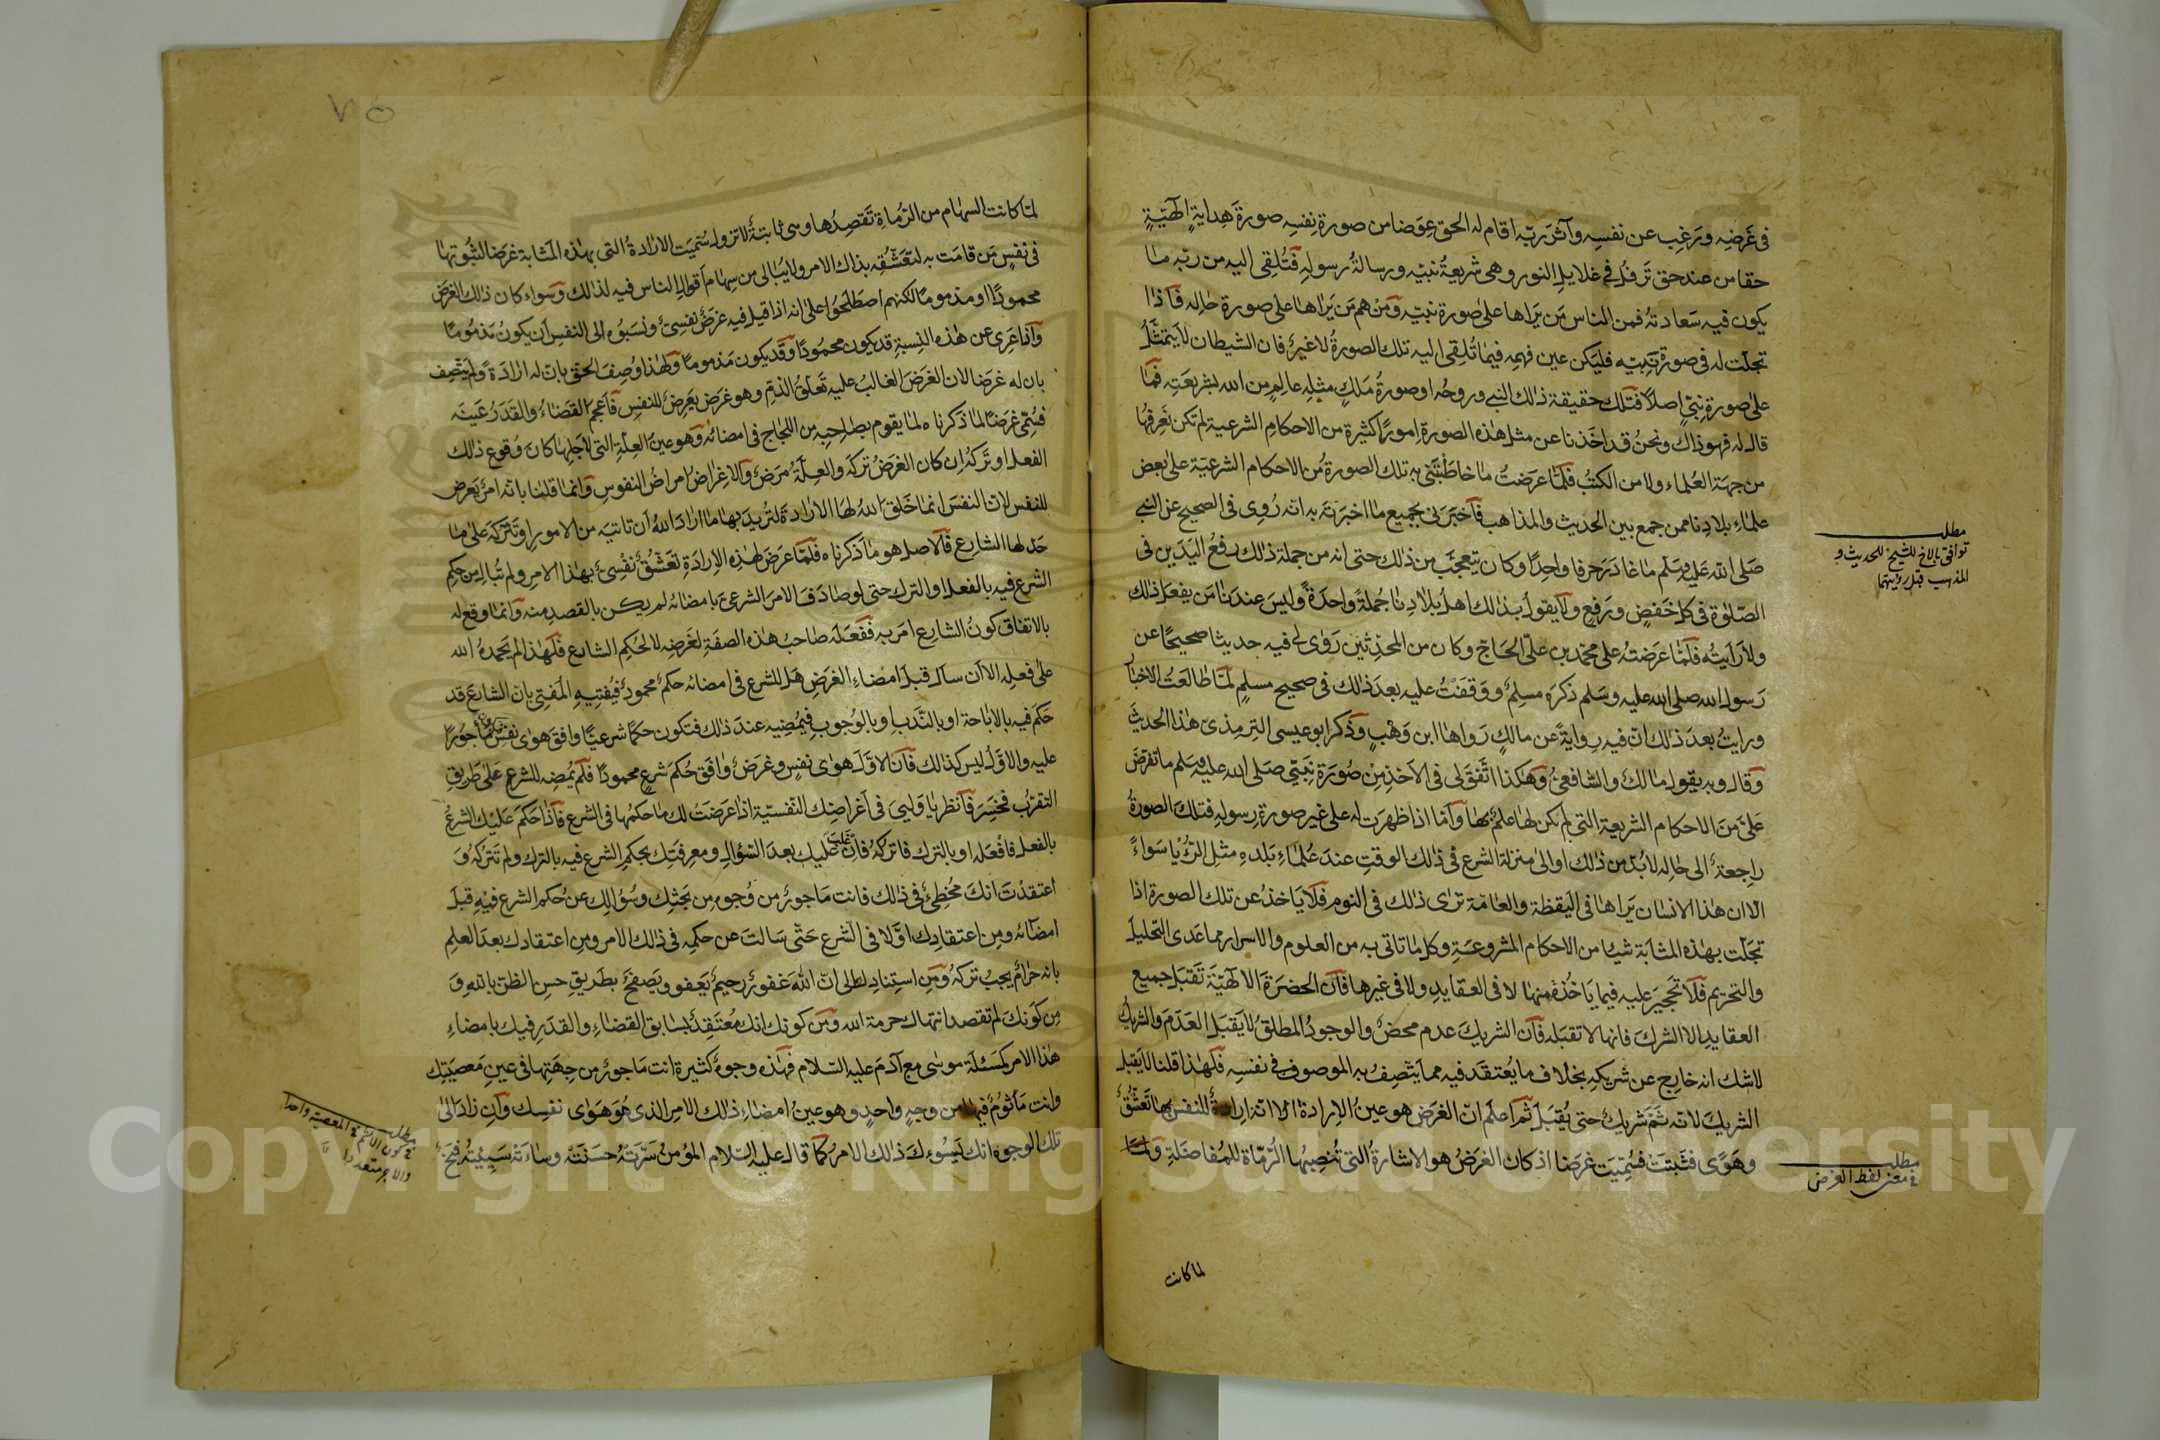 في غرضه ورغب عن نفسه وآثر ربه اقام له الحق عوضا من صورة نفسه صورة هداية الهية
حقا من عند حق ترفل في غلايل النور وهي شريعة نبيه ورسالة رسوله فتلقى اليه من ربه ما
يكون فيه سعادته فمن الناس من يراها على صورة نبيه ومنهم من يراها على صورة حاله فاذا
تجلت له في صورة نبيه فليكن عين فهمه فيما تلقى اليه تلك الصورة لا غير فان الشيطان لا يتمثل
على صورة نبي اصلا فتلك حقيقة ذلك النبي وروحه او صورة ملك مثله عالم من الله بشريعته فما
قال له فهو ذاك ونحن قد اخذنا عن مثل هذه الصورة امورا كثيرة من الاحكام الشرعية لم تكن نعرفها
من جهة العلماء ولا من الكتب فلما عرضت ما خاطبتني به تلك الصورة من الاحكام الشرعية على بعض
علماء بلادنا ممن جمع بين الحديث والمذاهب فاخبرني بجميع ما اخبرته به انه روى في الصحيح عن النبي
صلى الله عليه وسلم ما غادر حرفا واحدا وكان يتعجب من ذلك حتى انه من جملة ذلك رفع اليدين في
الصلوة في كل خفض ورفع ولا يقول بذلك اهل بلادنا جملة واحدة وليس عندنا من يفعل ذلك
ولا رايته فلما عرضته على محمد بن علي الحاج وكان من المحدثين روى لي فيه حديثا صحيحا عن
رسول الله صلى الله عليه وسلم ذكره مسلم ووقفت عليه بعد ذلك في صحيح مسلم لما طالعت الاخبار
ورايت بعد ذلك ان فيه رواية عن مالك رواها ابن وهب وذكر ابو عيسى الترمذي هذا الحديث
وقال وبه يقول مالك والشافعي وهكذا اتفق لي في الاخذ من صورة نبيي صلى الله عليه وسلم ما تعرض
علي من الاحكام الشريعة التي لم يكن لها علم بها واما اذا ظهرت له على غير صورة رسوله فتلك الصورة
راجعة الى حاله لا بد من ذلك او الى منزلة الشرع في ذلك الوقت عند علماء بلده مثل الرؤيا سواء
الا ان هذا الانسان يراها في اليقظة والعامة ترى ذلك في النوم فلا ياخذ عن تلك الصورة اذا
تجلت بهذه المثابة شيا من الاحكام المشروعة وكل ما تاتي به من العلوم والاسرار مما عدى التحليل
والتحريم فلا تحجير عليه فيما ياخذه منها لا في العقايد ولا في غيرها فان الحضرة الالهية تقبل جميع
العقايد الا الشرك فانها لا تقبله فان الشريك عدم محض والوجود المطلق لا يقبل العدم والشريك
لا شك انه خارج عن شريكه بخلاف ما يعتقد فيه مما يتصف به الموصوف في نفسه فلهذا قلنا لا يقبل
الشريك لانه ثم شريك حتى يقبل ثم اعلم ان الغرض هو عين الارادة الا انه ارادة للنفس بها تعشق
وهوى فثبتت فسميت غرضا اذ كان الغرض هو الاشارة التي تنصبها الرماة للمفاضلة ولما
لما كانت
مطلب
توافق بالاخ للشيخ للحديث و
المذهب قبل رؤيتهما
مطلب
في معنى لفظ الغرض
٧٥
لما كانت السهام من الرماة تقصدها وهي ثابتة لا تزول سميت الارادة التي بهذه المثابة غرضا لثبوتها
في نفس من قامت به لتعشقه بذلك الامر ولا يبالي من سهام اقوال الناس فيه لذلك وسواء كان ذلك الغرض
محمودا او مذموما لكنهم اصطلحوا على انه اذا قيل فيه غرض نفسي ونسبوه الى النفس ان يكون مذموما
واذا عرى عن هذه النسبة قد يكون محمودا وقد يكون مذموما ولهذا وصف الحق بان له ارادة ولم يتصف
بان له غرضا لان الغرض الغالب عليه تعلق الذم وهو عرض يعرض للنفس فاعجم القضاء والقدر عينه
فسمى غرضا لما ذكرناه لما يقوم بصاحبه من اللجاج في امضائه وهو عين العلة التي لاجلها كان وقوع ذلك
الفعل او تركه ان كان الغرض تركه والعلة مرض والاغراض امراض النفوس وانما قلنا بانه امر يعرض
للنفس لان النفس انما خلق الله لها الارادة لتريد بها ما اراد الله ان تاتيه من الامور او تتركه على ما
حد لها الشارع فالاصل هو ما ذكرناه فلما عرض لهذه الارادة تعشق نفسي بهذا الامر ولم تبال من حكم
الشرع فيه بالفعل او الترك حتى لو صادف الامر الشرعي بامضائه لم يكن بالقصد منه وانما وقع له
بالاتفاق كون الشارع امر به ففعله صاحب هذه الصفة لغرضه لا لحكم الشارع فلهذا لم يحمده الله
على فعله الا ان سال قبل امضاء الغرض هل للشرع في امضائه حكم محمود فيفتيه المفتي بان الشارع قد
حكم فيه بالاباحة او بالندب او بالوجوب فيمضيه عند ذلك فتكون حكما شرعيا وافق هوى نفس فيكون ماجورا
عليه والاول ليس كذلك فان الاول هوى نفس وغرض وافق حكم شرع محمودا فلم يمضه للشرع على طريق
التقرب فخسر فانظر يا وليي في اغراضك النفسية اذا عرضت لك ما حكمها في الشرع فاذا حكم عليك الشرع
بالفعل فافعله او بالترك فاتركه فان غلب عليك بعد السؤال ومعرفتك بحكم الشرع فيه بالترك ولم تتركه و
اعتقدت انك مخطئ في ذلك فانت ماجور من وجوه من بحثك وسؤالك عن حكم الشرع فيه قبل
امضائه ومن اعتقادك اولا في الشرع حتى سالت عن حكمه في ذلك الامر ومن اعتقادك بعد العلم
بانه حرام يجب تركه ومن استنادك الى ان الله غفور رحيم يعفو ويصفح بطريق حسن الظن بالله و
من كونك لم تقصد انتهاك حرمة الله ومن كونك انك معتقد لسابق القضاء والقدر فيك بامضاء
هذا الامر كمسئلة موسى مع آدم عليه السلام فهذه وجوه كثيرة انت ماجور من جهتها في عين معصيتك
وانت مأثوم فيها من وجه واحد وهو عين امضاء ذلك الامر الذي هو هوى نفسك وان زاد الى
تلك الوجوه انك يسوءك ذلك الامر كما قال عليه السلام المؤمن سرته حسنته وساءته سيئته فبخ
مطلب
في كون الاثم في المعصية واحدا
والاجر متعددا
Copyright © King Saud University